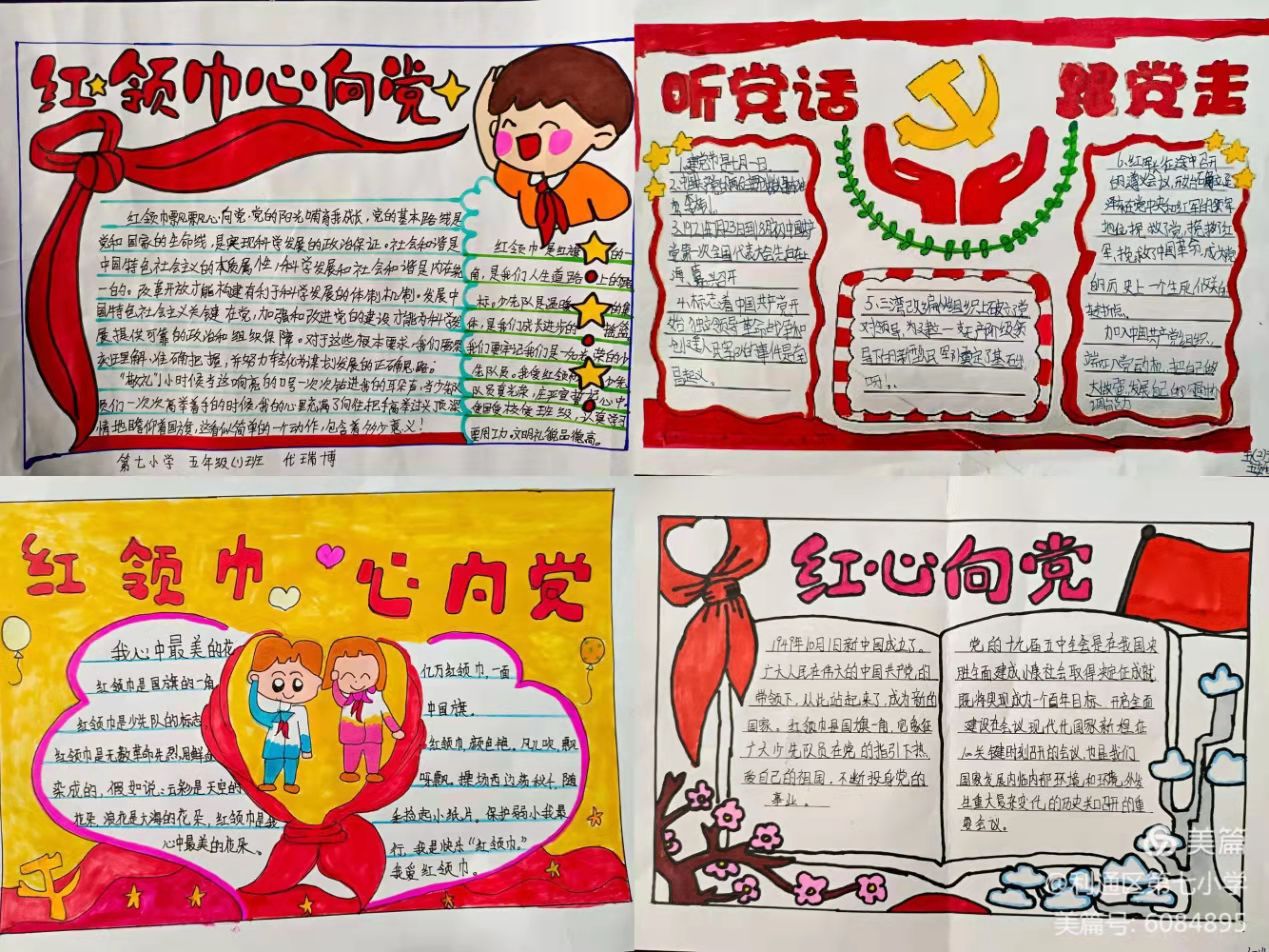 红领巾心向党
红领巾飘飘心向党。党的阳光哺育我成长,党的基本路线是
党和国家的生命线,是实现科学发展的政治保证。社会和谐是
中国特色社会主义的本质属性,科学发展和社会和谐是内在统
一的。改革开放才能构建有利于科学发展的体制机制。发展中
国特色社会主义关键在党,加强和改进党的建设才能为科学发
展提供可靠的政治和组织保障。对于这些根本要求,我们要
全面理解,准确把握,并努力转化为谋划发展的正确思路。
"敬礼"小时候每当响亮的口号一次次钻进我的耳朵里,当少先队
员们一次次高举着手的时候,我的心里充满了向往,把手高举过头顶深
情地瞻仰着国旗,这看似简单的一个动作,包含着多少意义!
红领巾是红旗的一
角,是我们人生道路上的路
标。少先队是
体,是我们成长进步的摇篮
我们要牢记我们是一名光荣的少
先队员。我爱红领巾
队员要光荣,庄严宣誓记心中
爱国爱校爱班级,
要用功,文明礼貌品德高。
第七小学 五年级(1)班 代瑞博
听党话 跟党走
1.建党节是七月一日
3.1921年7月23日到8月初中国共产
党第一次全国代表大会先后在上
海、嘉兴召开
4.标志着中国共产党开
始独立领导革命战争和
创建人民军队的事件是南
昌起义。
5.三湾改编从组织上确立了党
对领导,为建设一支无产阶级领
导下的新型人民军队奠定了基础
呀!
6.红军长征途中召开
的遵义会议,
泽东在党中央和红军的领导
地位,挽救了党、挽救红
军,挽救了中国革命,成为党
的历史上一个生死攸关的
转折点。
加入中国共产党组织,
端正入党动机,把自己的
红领巾 心向党
我心中最美的花
红领巾是国旗的一角
红领巾是少先队的标志
红领巾是无数革命先烈,用鲜血
染成的,假如说:云彩是天空的
花朵,浪花是大海的花朵,红领巾是我
心中最美的花朵。
亿万红领巾,一面
中国旗。
红领巾,颜色艳,风儿吹,飘
呀飘。操场西边荡秋千,随
手捡起小纸片,保护弱小我最
行,我是快乐"红领巾。"
我爱红领巾。
红心向党
1949年10月1日新中国成立了。
广大人民在伟大的中国共产党的
带领下,从此站起来了,成为新的
国家。红领巾是国旗一角,它象征
广大少先队员在党的指引下热
爱自己的祖国,不断投身党的
事业。
党的十九届五中全会是在我国决
胜全面建成小康社会取得决定性成就
既将实现成为一个百年目标、开启全面
建设社会议现代化国家新程在
的关键时刻召开的会议,也是我们
国家发展内临内部环境和环境外发
生重大复杂变化的历史关口召开的重
要会议。
美篇
@利通区第七小学
美篇号: 6084895